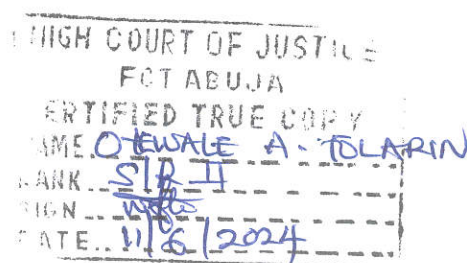 HIGH COURT OF JUSTICE
FCT ABUJA
ERTIFIED TRUE COPY
AME OTEWALE A. TOLARIN
RANK S/R II
SIGN
ATE 11/6/2024